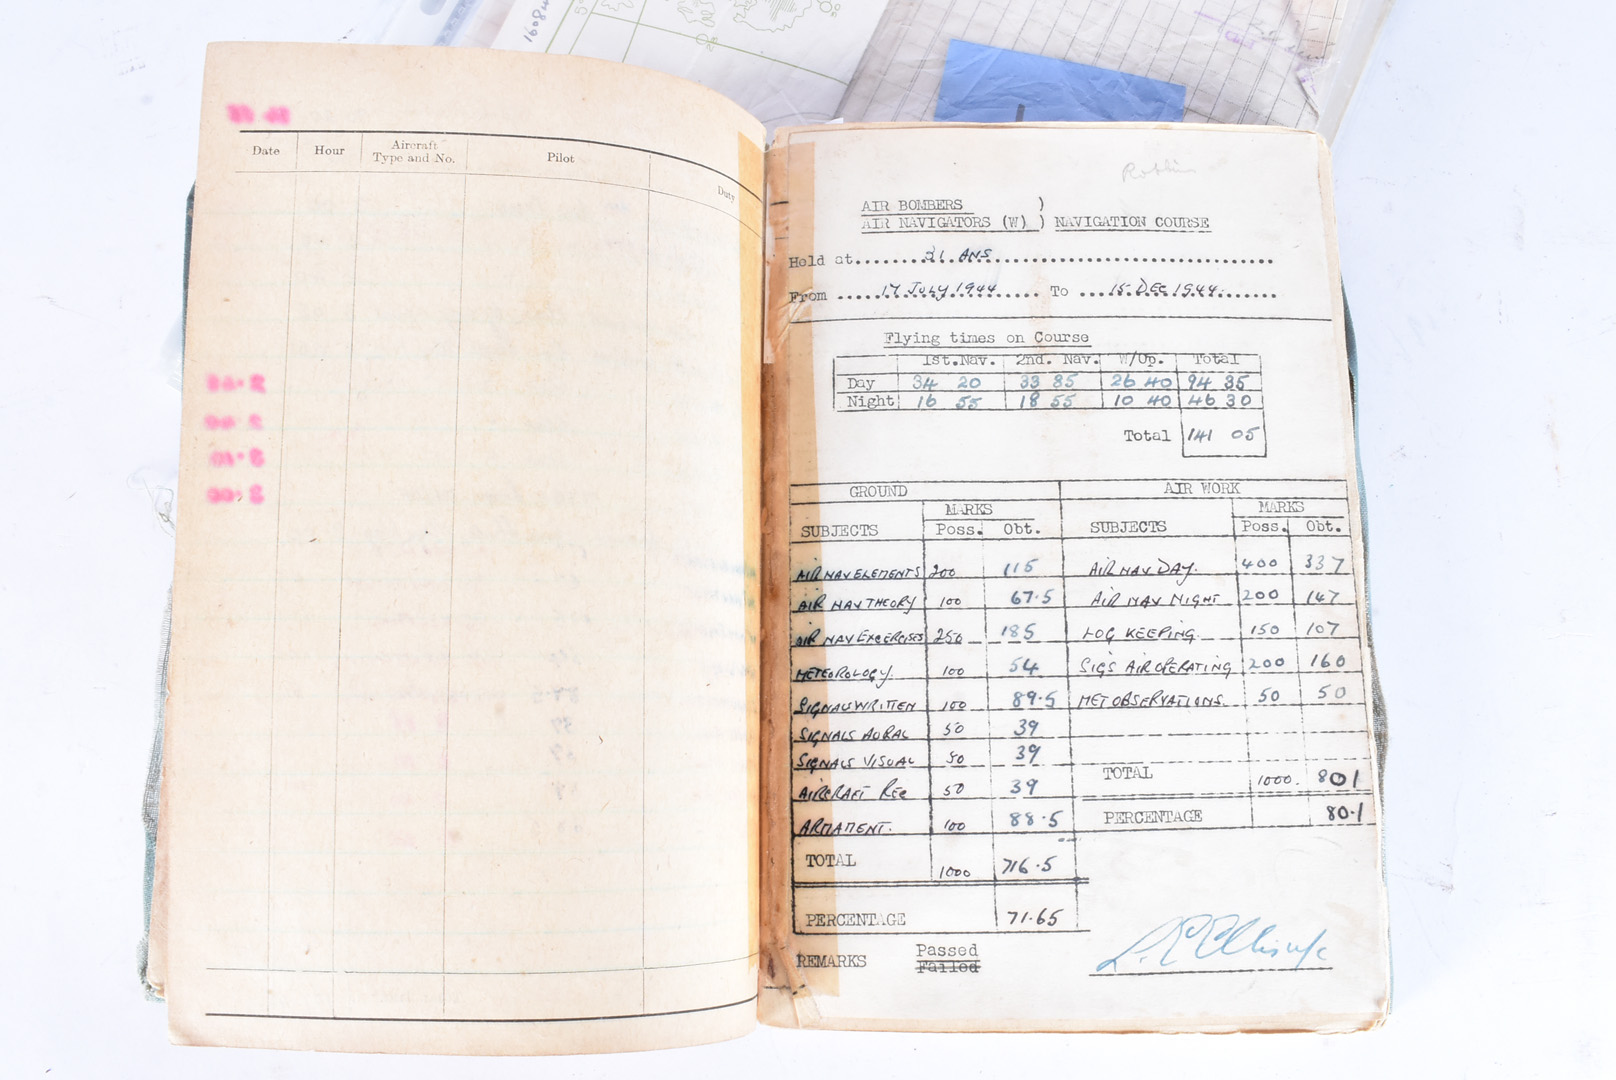 16084
Date Hour Aircraft Type and No. Pilot Duty
AIR BOMBERS )
AIR NAVIGATORS (W) ) NAVIGATION COURSE
Held at........31 ANS........
From ....17 JULY 1944.... To ....15. DEC 1944.....
Flying times on Course
1st.Nav. 2nd. Nav. W/Op. Total
Day 34 20 33 35 26 40 94 35
Night 16 55 18 55 10 40 46 30
Total 141 05
GROUND AIR WORK
MARKS MARKS
SUBJECTS Poss. Obt. SUBJECTS Poss. Obt.
AIR NAV ELEMENTS 200 115 AIR NAV DAY. 400 337
AIR NAV THEORY 100 67.5 AIR NAV NIGHT 200 147
AIR NAV EXCERCISES 250 185 LOG KEEPING 150 107
METEOROLOGY. 100 54 SIGS AIR OPERATING 200 160
SIGNALS WRITTEN 100 89.5 MET OBSERVATIONS 50 50
SIGNALS AURAL 50 39
SIGNALS VISUAL 50 39
AIRCRAFT REC 50 39 TOTAL 1000. 801
ARMAMENT. 100 88.5 PERCENTAGE 80.1
TOTAL 1000 716.5
PERCENTAGE 71.65
REMARKS Passed
Failed